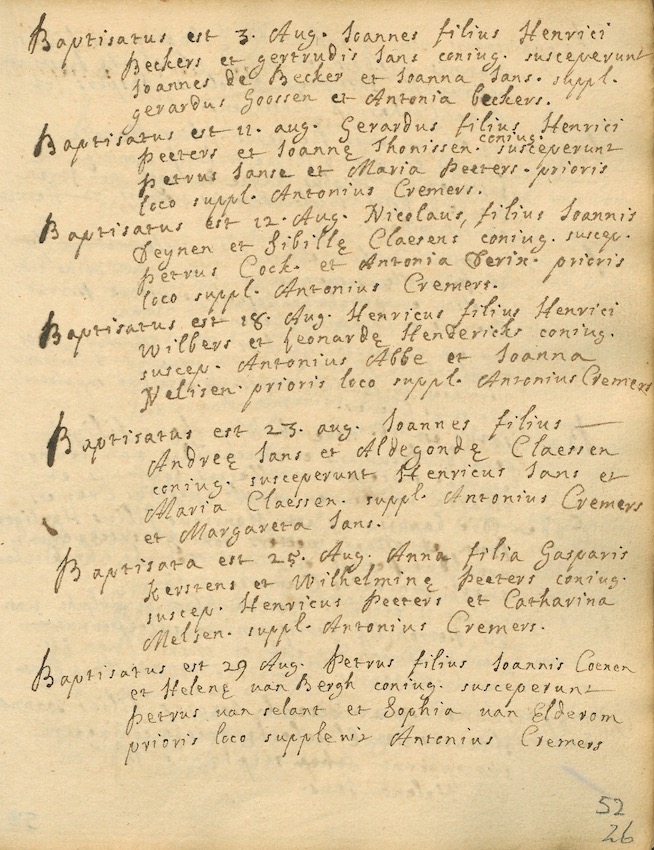 Baptisatus est 3. Aug. Ioannes filius Henrici
Beckers et gertrudis Ians coniug. susceperunt
Ioannes de Becker et Ioanna Ians. suppl.
gerardus Goossen et Antonia beckers.
Baptisatus est 11. aug. Gerardus filius Henrici
Peeters et Ioannę Thonissen coniug. susceperunt
Petrus Ianse et Maria Peeters. prioris
loco suppl. Antonius Cremers.
Baptisatus est 12. Aug. Nicolaus, filius Ioannis
Seynen et Sibillę Claesens coniug. suscep.
Petrus Cock. et Antonia Derix. prioris
loco suppl. Antonius Cremers.
Baptisatus est 18. Aug. Henricus filius Henrici
Wilbers et Leonardę Hendericks coniug.
suscep. Antonius Abbe et Ioanna
Nelisen. prioris loco suppl. Antonius Cremers
Baptisatus est 23. aug. Ioannes filius —
Andreę Ians et Aldegondę Claessen
coniug. susceperunt Henricus Ians et
Maria Claessen. suppl. Antonius Cremers
et Margareta Ians.
Baptisata est 25. Aug. Anna filia Gasparis
Kerstens et Wilhelminę Peeters coniug.
suscep. Henricus Peeters et Catharina
Melsen. suppl. Antonius Cremers.
Baptisatus est 29 Aug. Petrus filius Ioannis Coenen
et Helenę van Bergh coniug. susceperunt
Petrus van selant et Sophia van Elderom
prioris loco supplevit Antonius Cremers
52
26